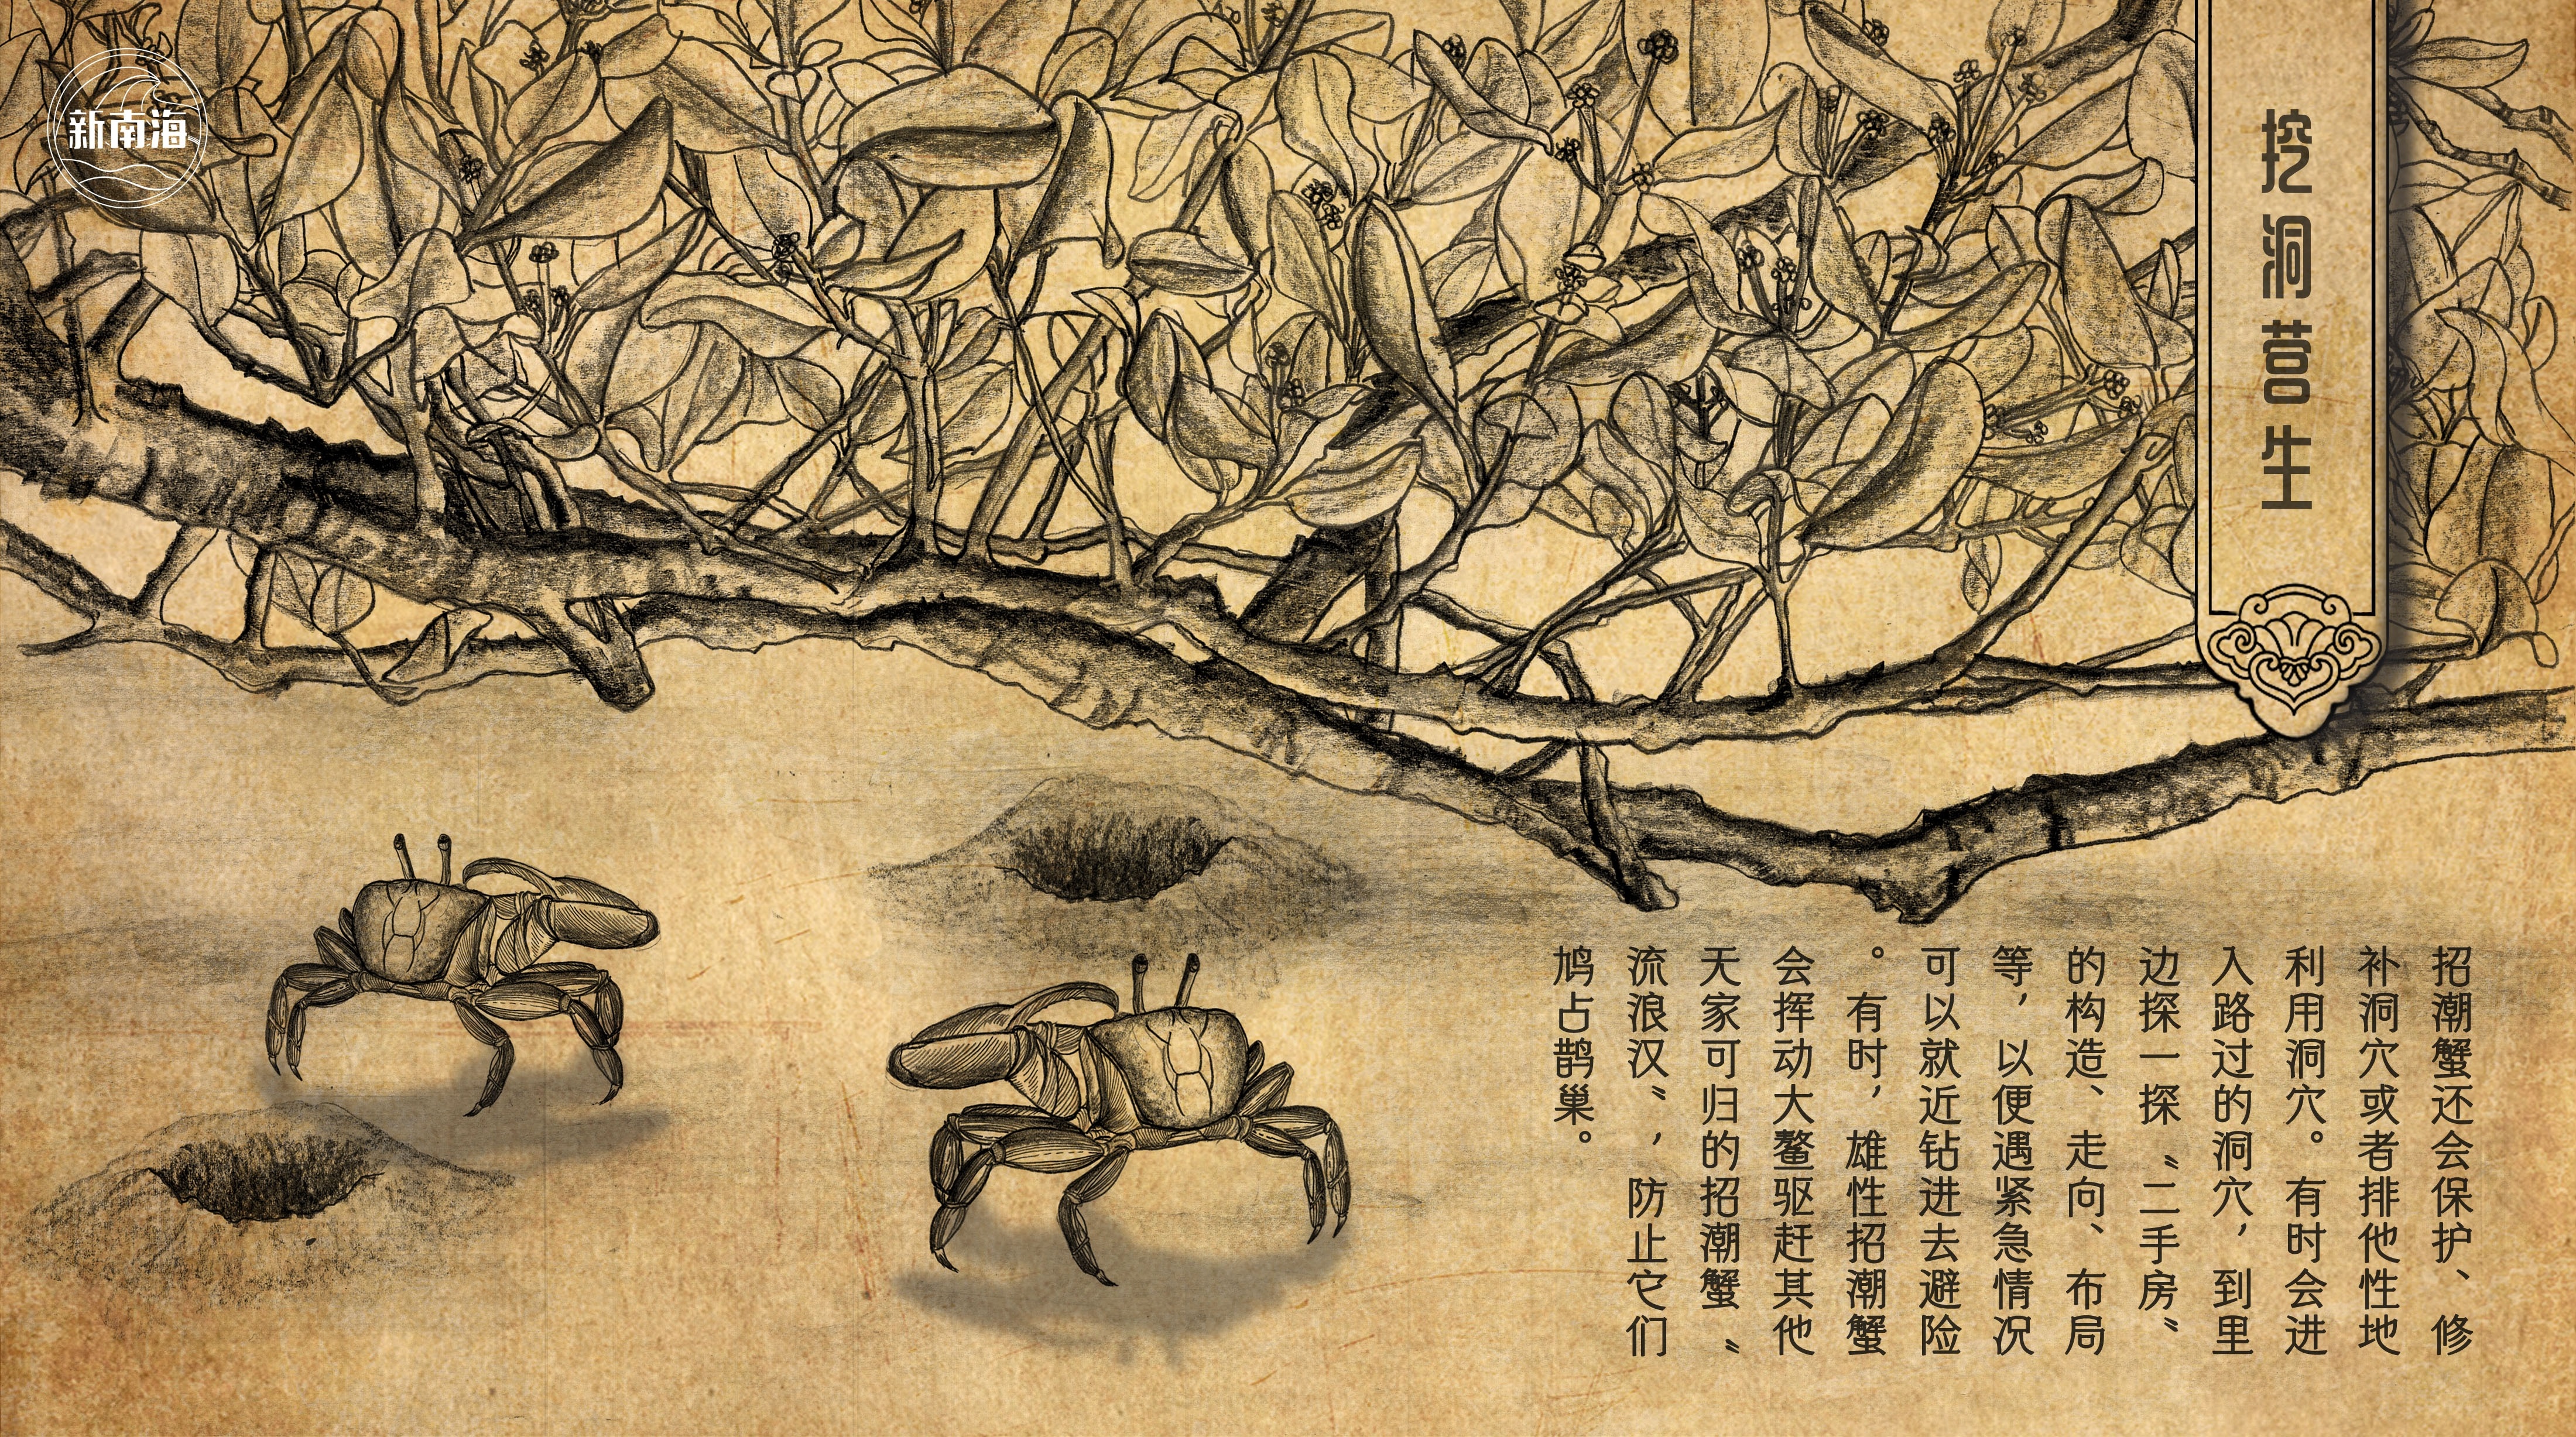 新南海
挖洞营生
招潮蟹还会保护、修
补洞穴或者排他性地
利用洞穴。有时会进
入路过的洞穴，到里
边探一探“二手房”
的构造、走向、布局
等，以便遇紧急情况
可以就近钻进去避险
。有时，雄性招潮蟹
会挥动大鳌驱赶其他
天家可归的招潮蟹“
流浪汉”，防止它们
鸠占鹊巢。